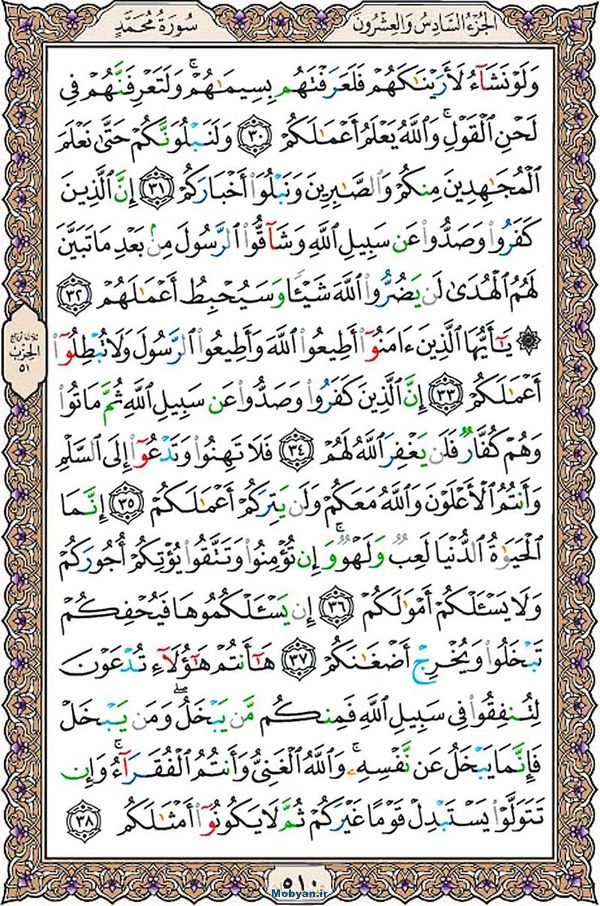 سُورَةُ مُحَمَّدٍ
الجُزءُ السَّادِسُ وَالعِشرُونَ
وَلَوْ نَشَآءُ لَأَرَيْنَٰكَهُمْ فَلَعَرَفْتَهُم بِسِيمَٰهُمْ ۚ وَلَتَعْرِفَنَّهُمْ فِى
لَحْنِ ٱلْقَوْلِ ۚ وَٱللَّهُ يَعْلَمُ أَعْمَٰلَكُمْ ٣٠ وَلَنَبْلُوَنَّكُمْ حَتَّىٰ نَعْلَمَ
ٱلْمُجَٰهِدِينَ مِنكُمْ وَٱلصَّٰبِرِينَ وَنَبْلُوَا۟ أَخْبَارَكُمْ ٣١ إِنَّ ٱلَّذِينَ
كَفَرُوا۟ وَصَدُّوا۟ عَن سَبِيلِ ٱللَّهِ وَشَآقُّوا۟ ٱلرَّسُولَ مِنۢ بَعْدِ مَا تَبَيَّنَ
لَهُمُ ٱلْهُدَىٰ لَن يَضُرُّوا۟ ٱللَّهَ شَيْـًٔا وَسَيُحْبِطُ أَعْمَٰلَهُمْ ٣٢
۞ يَٰٓأَيُّهَا ٱلَّذِينَ ءَامَنُوٓا۟ أَطِيعُوا۟ ٱللَّهَ وَأَطِيعُوا۟ ٱلرَّسُولَ وَلَا تُبْطِلُوٓا۟
أَعْمَٰلَكُمْ ٣٣ إِنَّ ٱلَّذِينَ كَفَرُوا۟ وَصَدُّوا۟ عَن سَبِيلِ ٱللَّهِ ثُمَّ مَاتُوا۟
وَهُمْ كُفَّارٌ فَلَن يَغْفِرَ ٱللَّهُ لَهُمْ ٣٤ فَلَا تَهِنُوا۟ وَتَدْعُوٓا۟ إِلَى ٱلسَّلْمِ
وَأَنتُمُ ٱلْأَعْلَوْنَ وَٱللَّهُ مَعَكُمْ وَلَن يَتِرَكُمْ أَعْمَٰلَكُمْ ٣٥ إِنَّمَا
ٱلْحَيَوٰةُ ٱلدُّنْيَا لَعِبٌ وَلَهْوٌ ۚ وَإِن تُؤْمِنُوا۟ وَتَتَّقُوا۟ يُؤْتِكُمْ أُجُورَكُمْ
وَلَا يَسْـَٔلْكُمْ أَمْوَٰلَكُمْ ٣٦ إِن يَسْـَٔلْكُمُوهَا فَيُحْفِكُمْ
تَبْخَلُوا۟ وَيُخْرِجْ أَضْغَٰنَكُمْ ٣٧ هَٰٓأَنتُمْ هَٰٓؤُلَآءِ تُدْعَوْنَ
لِتُنفِقُوا۟ فِى سَبِيلِ ٱللَّهِ فَمِنكُم مَّن يَبْخَلُ ۖ وَمَن يَبْخَلْ
فَإِنَّمَا يَبْخَلُ عَن نَّفْسِهِۦ ۚ وَٱللَّهُ ٱلْغَنِىُّ وَأَنتُمُ ٱلْفُقَرَآءُ ۚ وَإِن
تَتَوَلَّوْا۟ يَسْتَبْدِلْ قَوْمًا غَيْرَكُمْ ثُمَّ لَا يَكُونُوٓا۟ أَمْثَٰلَكُم ٣٨
الحِزْب
٥١
٥١٠
Mobyan.ir